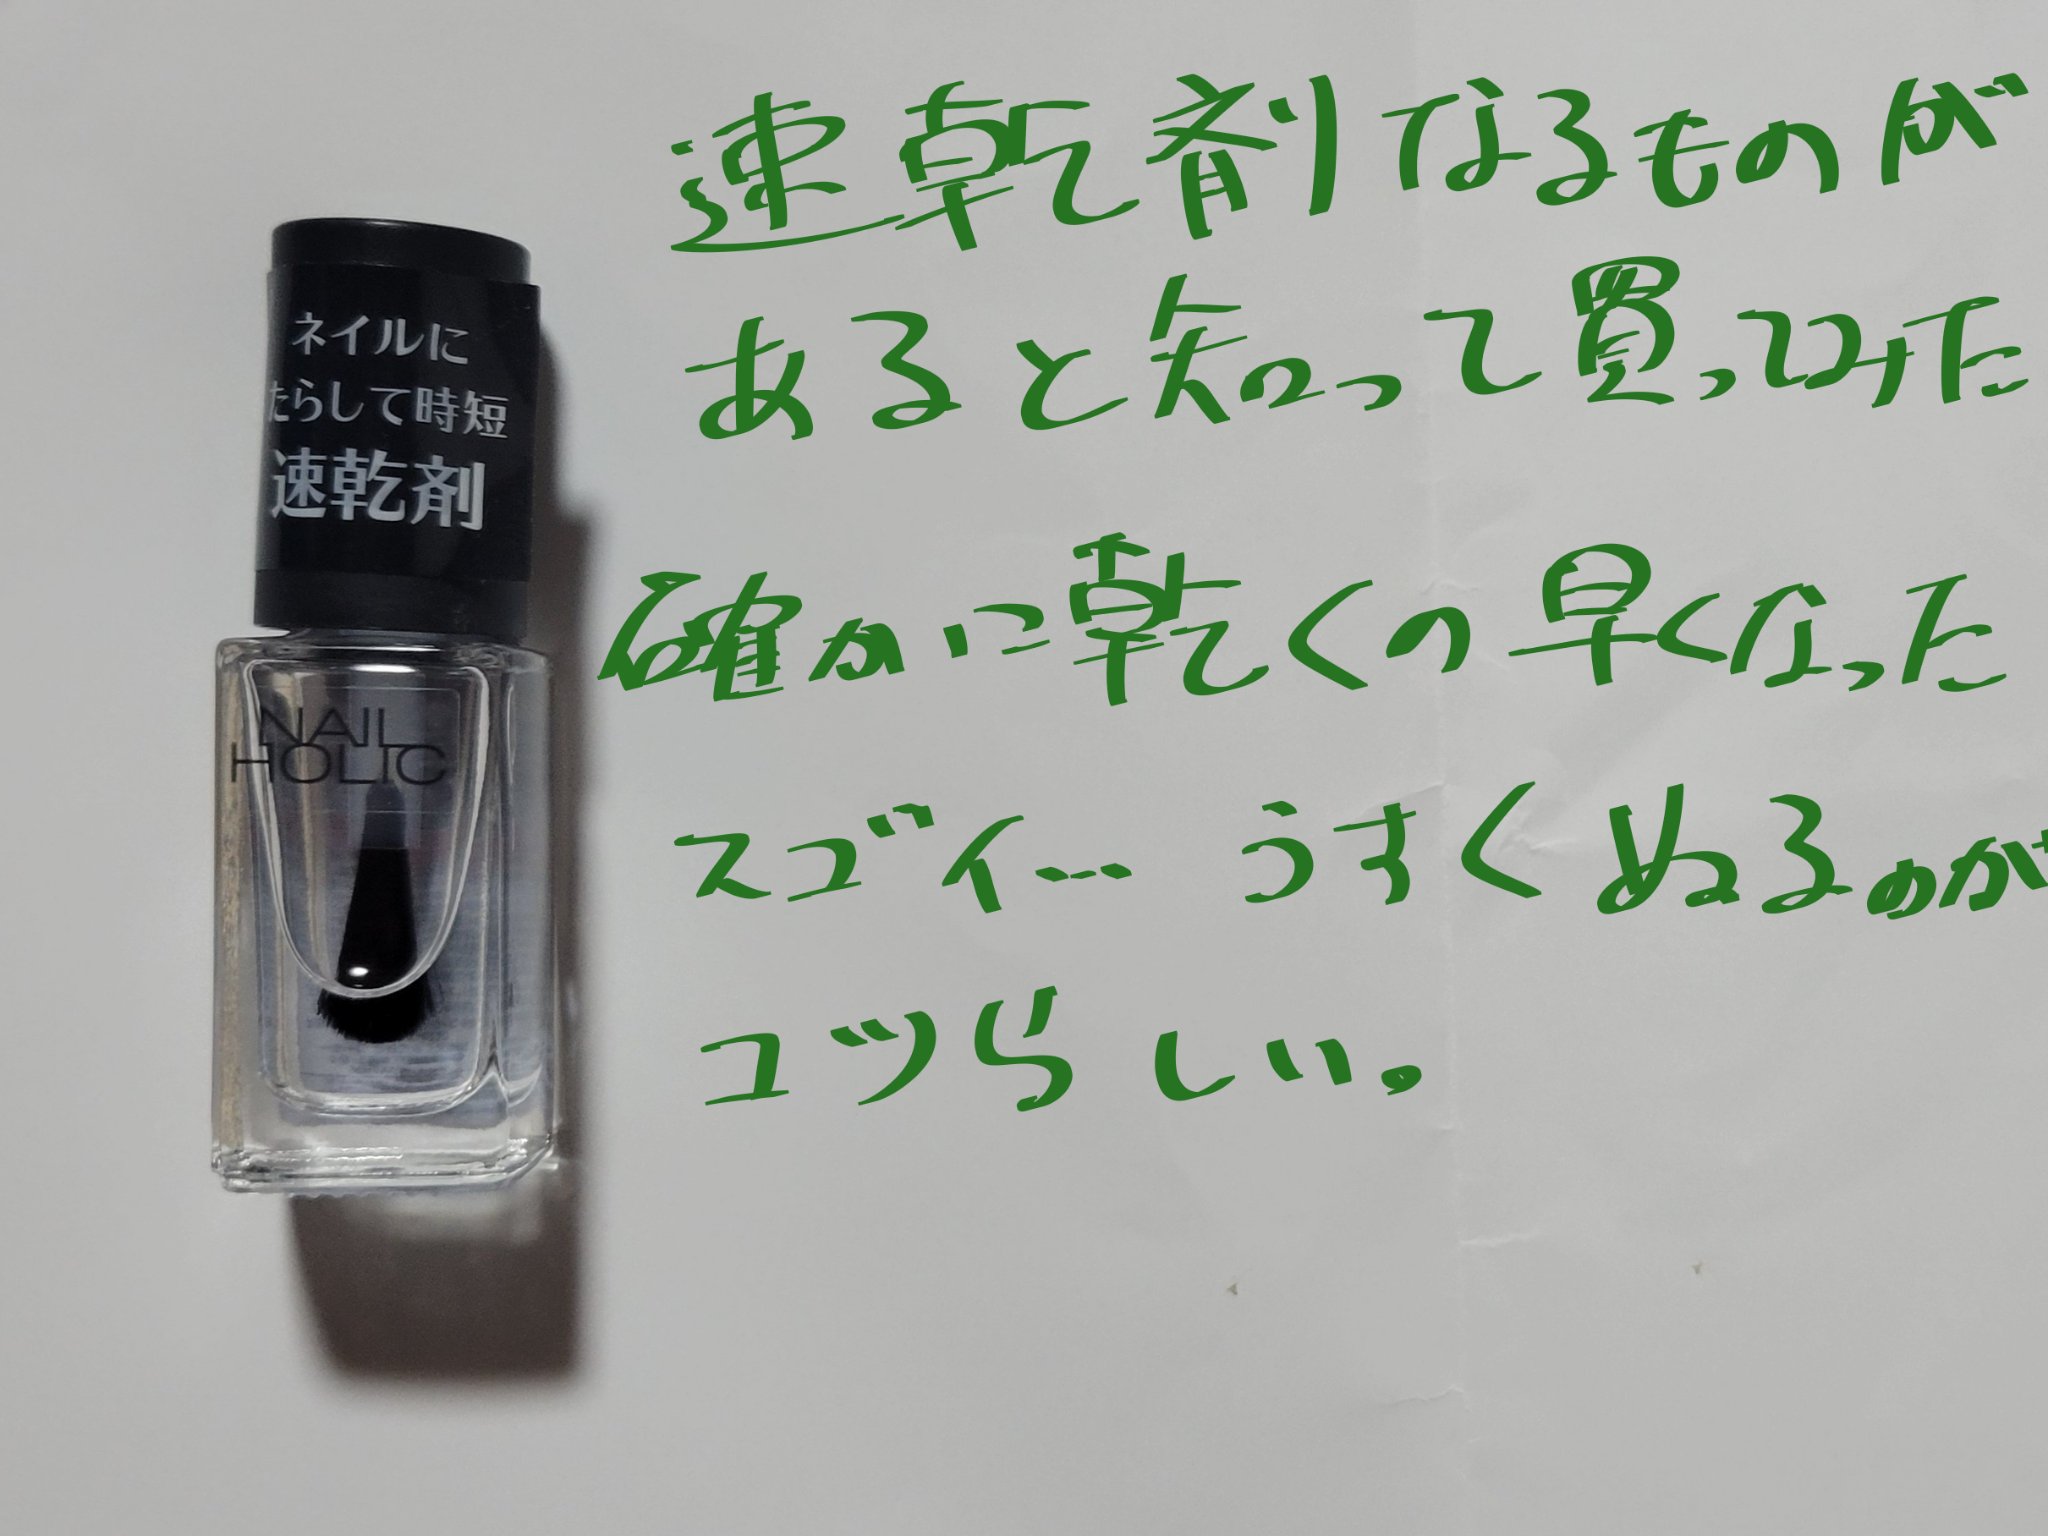 ネイルに
たらして時短
速乾剤
NAIL
HOLIC
速乾剤なるものが
あると知って買ってみた
確かに乾くの早くなった
スゴイ… うすくぬるのが
コツらしい。